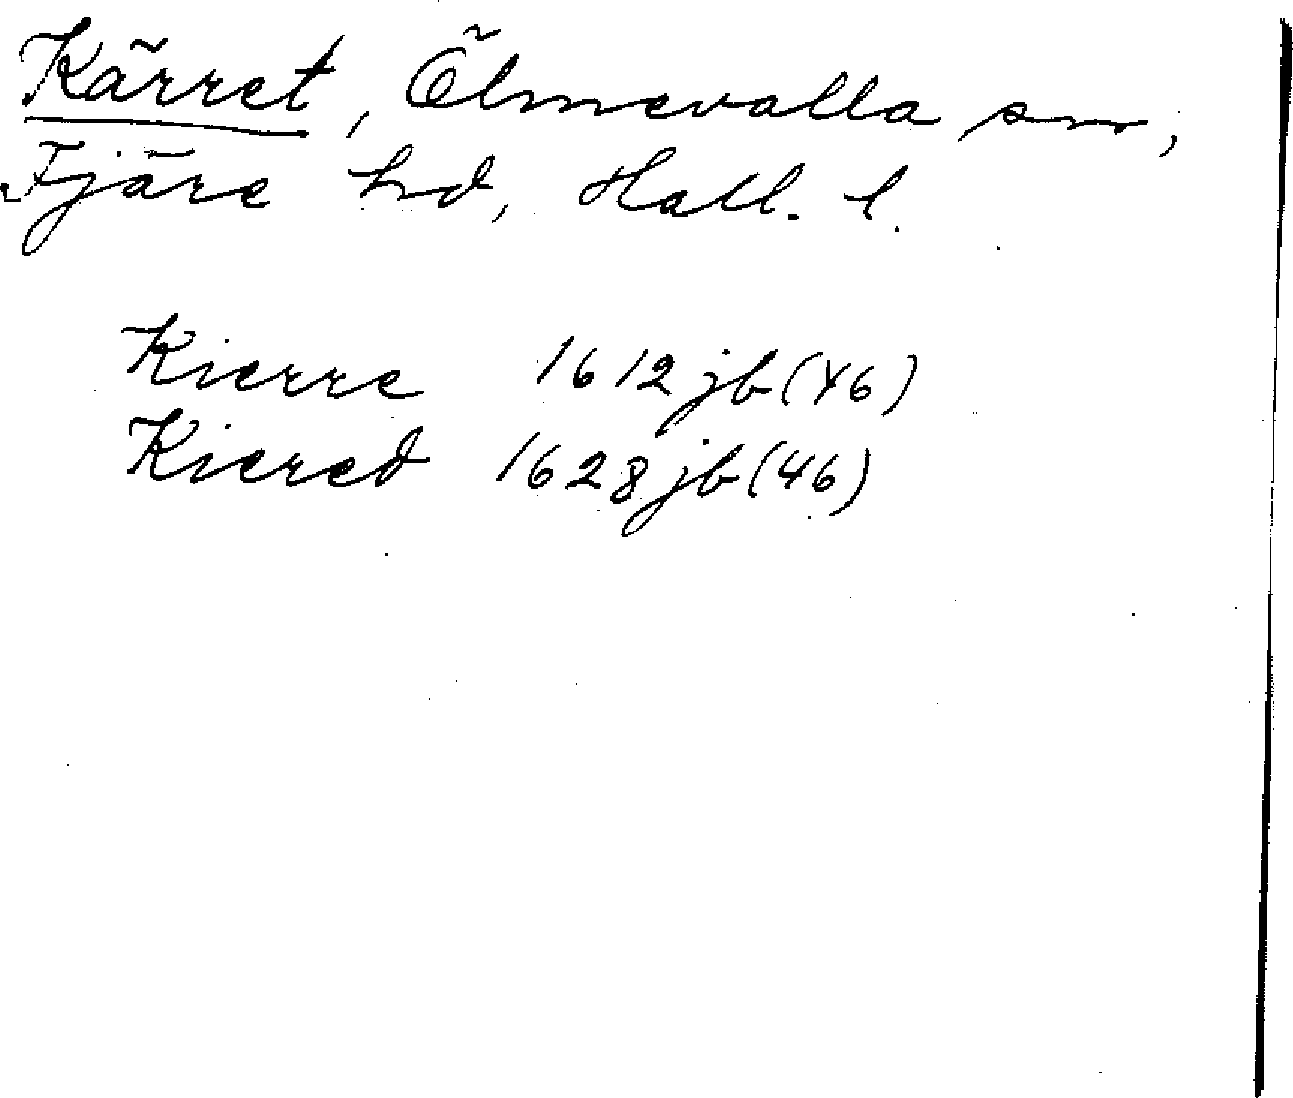 Kärret, Ölmevalla sn,
Fjäre hd, Hall. l.
Kierre 1612 jb (46)
Kiered 1628 jb (46)